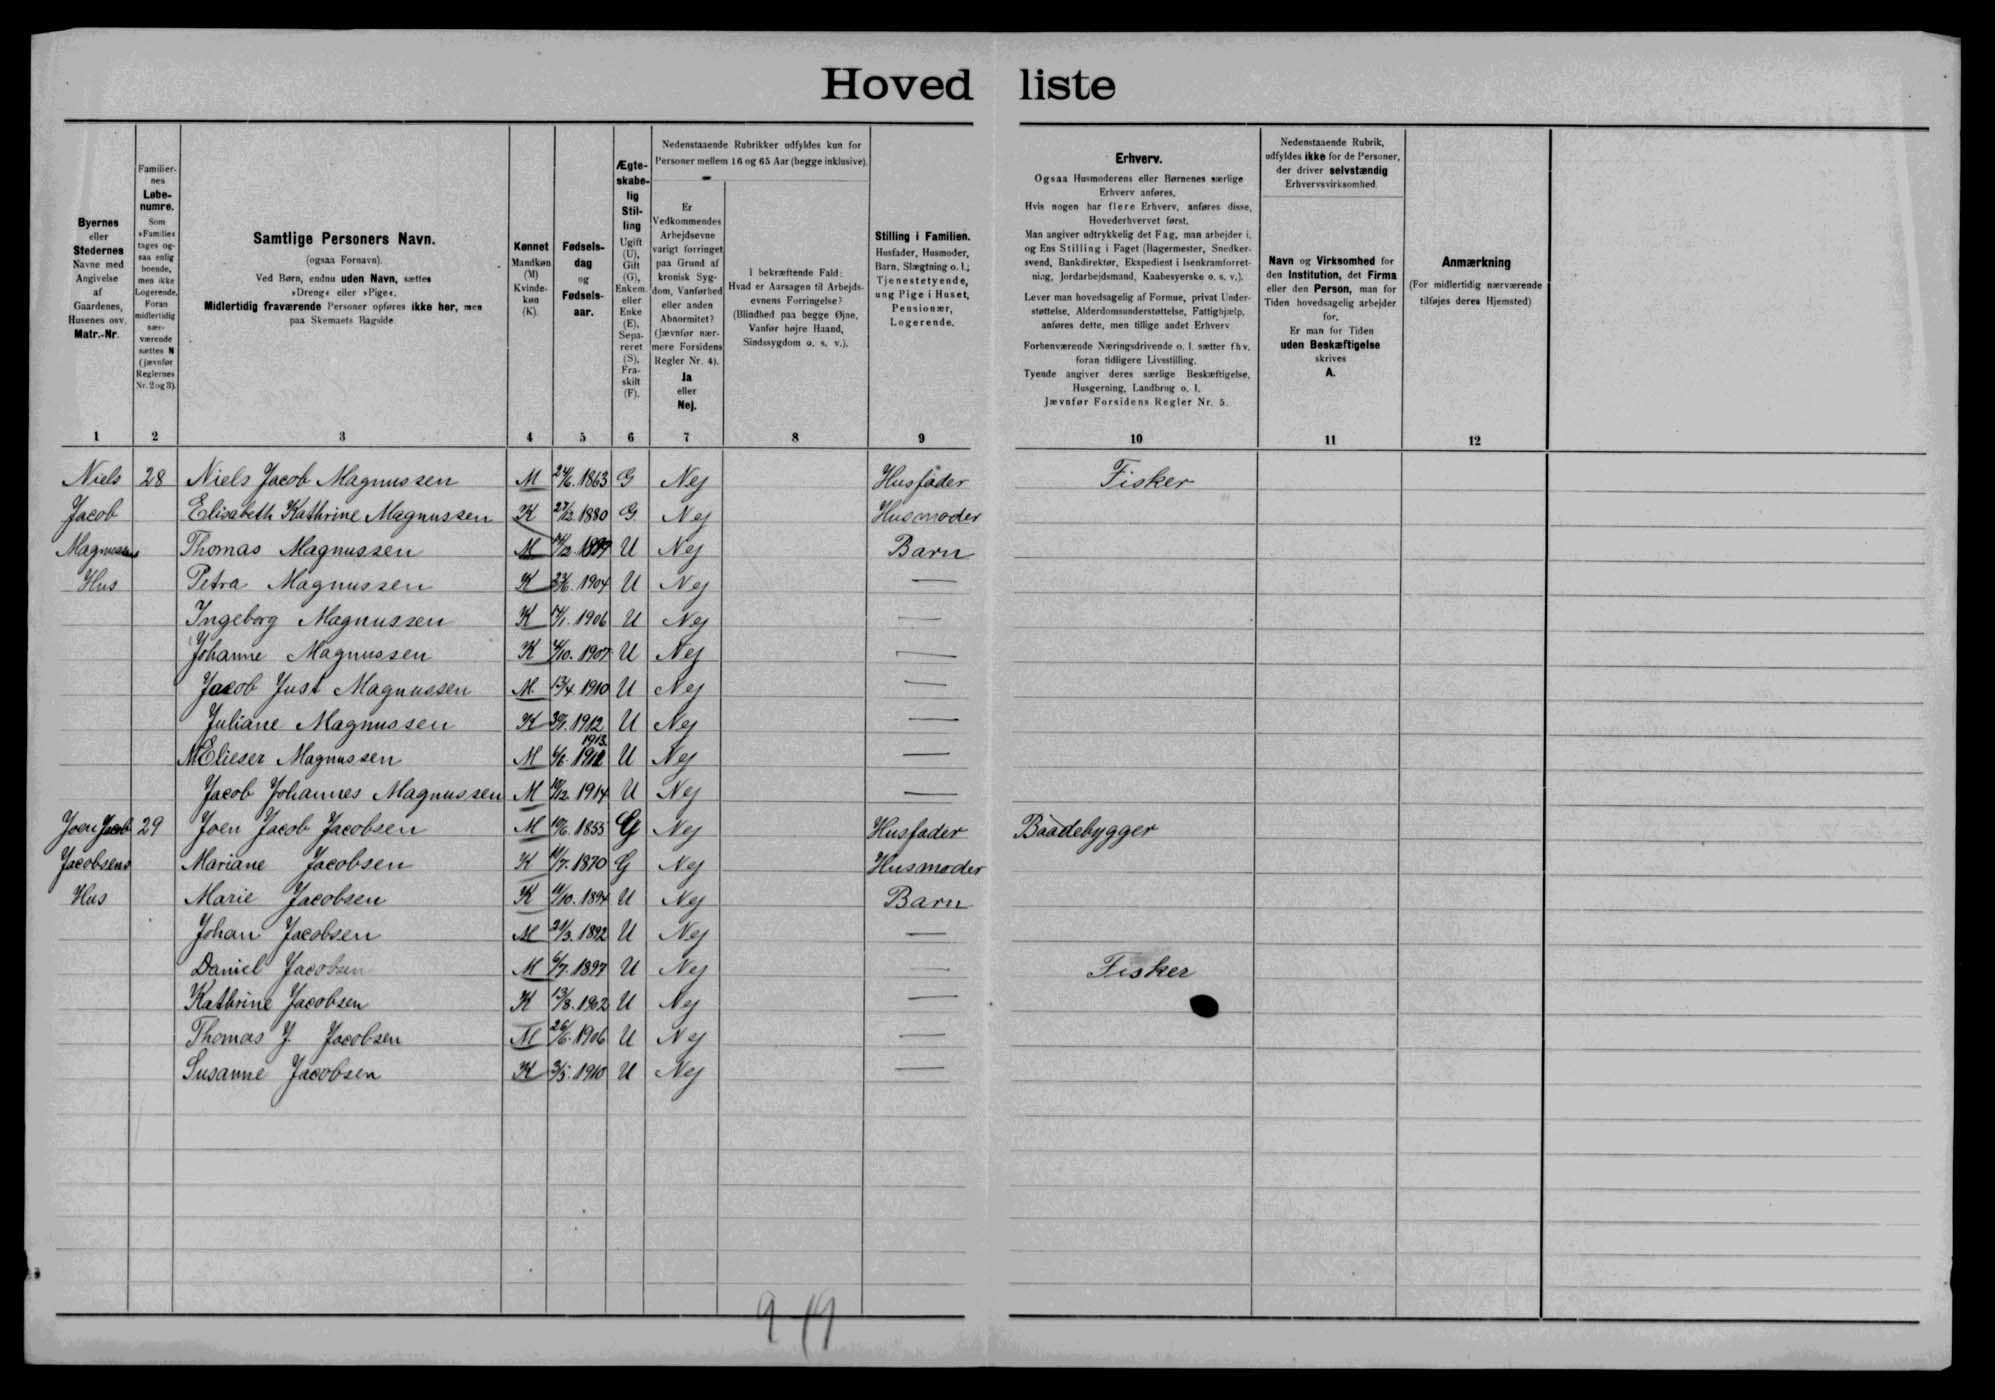 Hoved liste
Byernes
eller
Stedernes
Navne med
Angivelse
af
Gaardenes,
Husenes osv.
Matr.-Nr.
Familier-
nes
Løbe-
numre.
Som
»Familie«
tages og-
saa enlig
boende,
men ikke
Logerende.
Foran
midlertidig
nær-
værende
sættes N
(jævnfør
Reglernes
Nr. 2 og 3).
Samtlige Personers Navn.
(ogsaa Fornavn).
Ved Børn, endnu uden Navn, sættes
»Dreng« eller »Pige«.
Midlertidig fraværende Personer opføres ikke her, men
paa Skemaets Bagside.
Kønnet
Mandkøn
(M)
Kvinde-
køn
(K).
Fødsels-
dag
og
Fødsels-
aar.
Ægte-
skabe-
lig
Stil-
ling
Ugift
(U),
Gift
(G),
Enkem.
eller
Enke
(E),
Sepa-
reret
(S),
Fra-
skilt
(F).
Nedenstaaende Rubrikker udfyldes kun for
Personer mellem 16 og 65 Aar (begge inklusive).
Er
Vedkommendes
Arbejdsevne
varigt forringet
paa Grund af
kronisk Syg-
dom, Vanførhed
eller anden
Abnormitet?
(Jævnfør nær-
mere Forsidens
Regler Nr. 4).
Ja
eller
Nej.
I bekræftende Fald:
Hvad er Aarsagen til Arbejds-
evnens Forringelse?
(Blindhed paa begge Øjne,
Vanfør højre Haand,
Sindssygdom o. s. v.).
Stilling i Familien.
Husfader, Husmoder,
Barn, Slægtning o. l.;
Tjenestetyende,
ung Pige i Huset,
Pensionær,
Logerende.
Erhverv.
Ogsaa Husmoderens eller Børnenes særlige
Erhverv anføres.
Hvis nogen har flere Erhverv, anføres disse,
Hovederhvervet først.
Man angiver udtrykkelig det Fag, man arbejder i,
og Ens Stilling i Faget (Bagermester, Snedker-
svend, Bankdirektør, Ekspedient i Isenkramforret-
ning, Jordarbejdsmand, Kaabesyerske o. s. v.).
Lever man hovedsagelig af Formue, privat Under-
støttelse, Alderdomsunderstøttelse, Fattighjælp,
anføres dette, men tillige andet Erhverv
Forhenværende Næringsdrivende o. l. sætter fhv.
foran tidligere Livsstilling.
Tyende angiver deres særlige Beskæftigelse,
Husgerning, Landbrug o. l.
Jævnfør Forsidens Regler Nr. 5.
Nedenstaaende Rubrik,
udfyldes ikke for de Personer,
der driver selvstændig
Erhvervsvirksomhed.
Navn og Virksomhed for
den Institution, det Firma
eller den Person, man for
Tiden hovedsagelig arbejder
for.
Er man for Tiden
uden Beskæftigelse
skrives
A.
Anmærkning
(For midlertidig nærværende
tilføjes deres Hjemsted)
1 2 3 4 5 6 7 8 9 10 11 12
Niels 28 Niels Jacob Magnussen M 24/6. 1863 G Nej Husfader Fisker
Jacob Elisabeth Kathrine Magnussen K 27/12. 1880 G Nej Husmoder
Magnussens Thomas Magnussen M 14/12. 1899 U Nej Barn
Hus Petra Magnussen K 23/6. 1904 U Nej —
Ingeborg Magnussen K 14/1. 1906 U Nej —
Johanne Magnussen K 4/10. 1907 U Nej —
Jacob Just Magnussen M 13/4. 1910 U Nej —
Juliane Magnussen K 30/1. 1912 U Nej —
1913.
M Elieser Magnussen M 6/6. 1912 U Nej —
Jacob Johannes Magnussen M 10/12. 1914 U Nej —
Joen Jacob 29 Joen Jacob Jacobsen M 10/6. 1855 G Nej Husfader Baadebygger
Jacobsens Mariane Jacobsen K 11/7. 1870 G Nej Husmoder
Hus Marie Jacobsen K 11/10. 1894 U Nej Barn
Johan Jacobsen M 21/3. 1892 U Nej —
Daniel Jacobsen M 6/7. 1897 U Nej — Fisker
Kathrine Jacobsen K 13/8. 1902 U Nej —
Thomas J. Jacobsen M 26/6. 1906 U Nej —
Susanne Jacobsen K 3/5. 1910 U Nej —
9 19